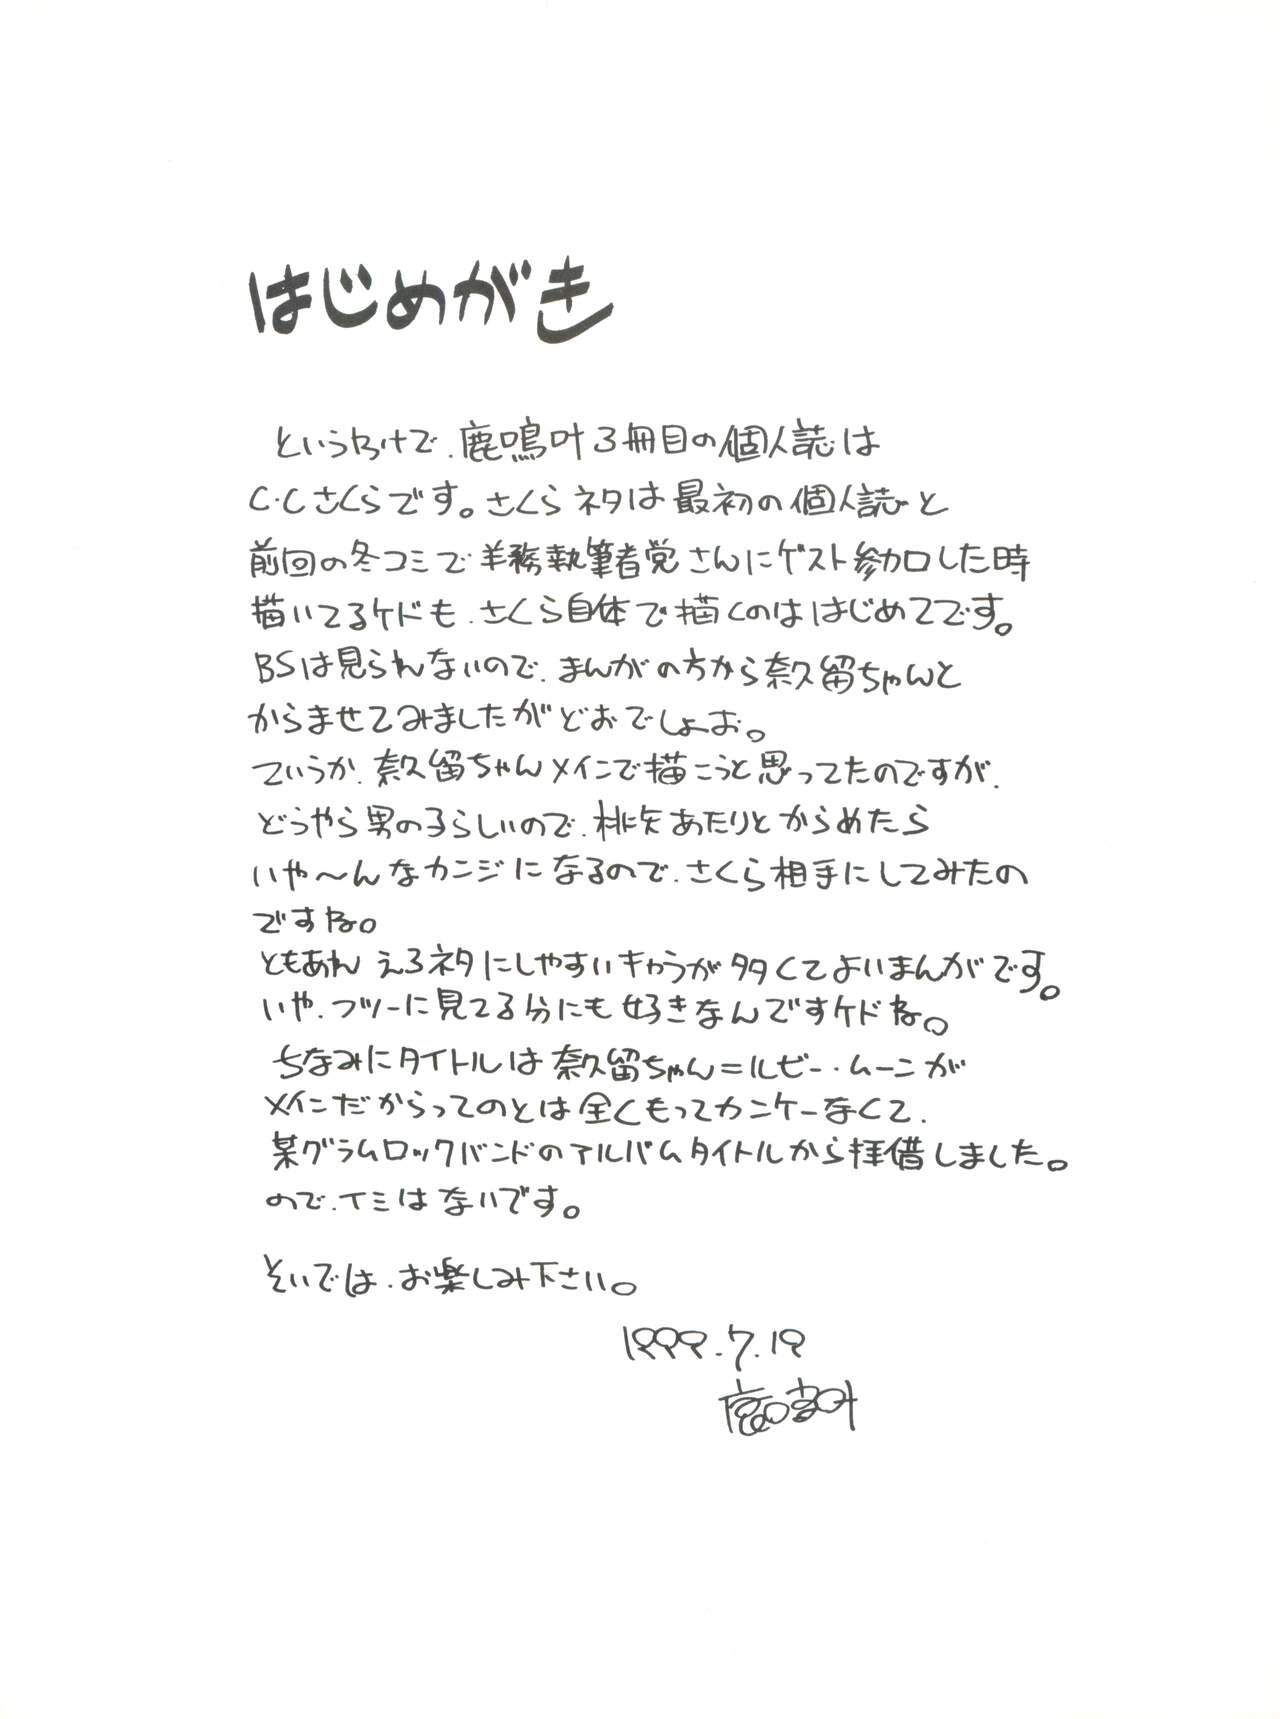 はじめがき
というわけで、鹿鳴叶3冊目の個人誌は
C・Cさくらです。さくらネタは最初の個人誌と
前回の冬コミで羊務執筆者党さんにゲスト参加した時
描いてるケドも、さくら自体で描くのははじめてです。
BSは見られないので、まんがの方から奈久留ちゃんと
からませてみましたがどおでしょお。
ていうか、奈久留ちゃんメインで描こうと思ってたのですが、
どうやら男の子らしいので、桃矢あたりとからめたら
いや〜んなカンジになるので、さくら相手にしてみたの
ですね。
ともあれ えろネタにしやすいキャラが多くてよいまんがです。
いや、フツーに見てる分にも好きなんですケドね。
ちなみにタイトルは奈久留ちゃん=ルビー・ムーンが
メインだからってのとは全くもってカンケーなくて、
某グラムロックバンドのアルバムタイトルから拝借しました。
ので、イミはないです。
そいでは、お楽しみ下さい。
1999.7.19
鹿鳴叶